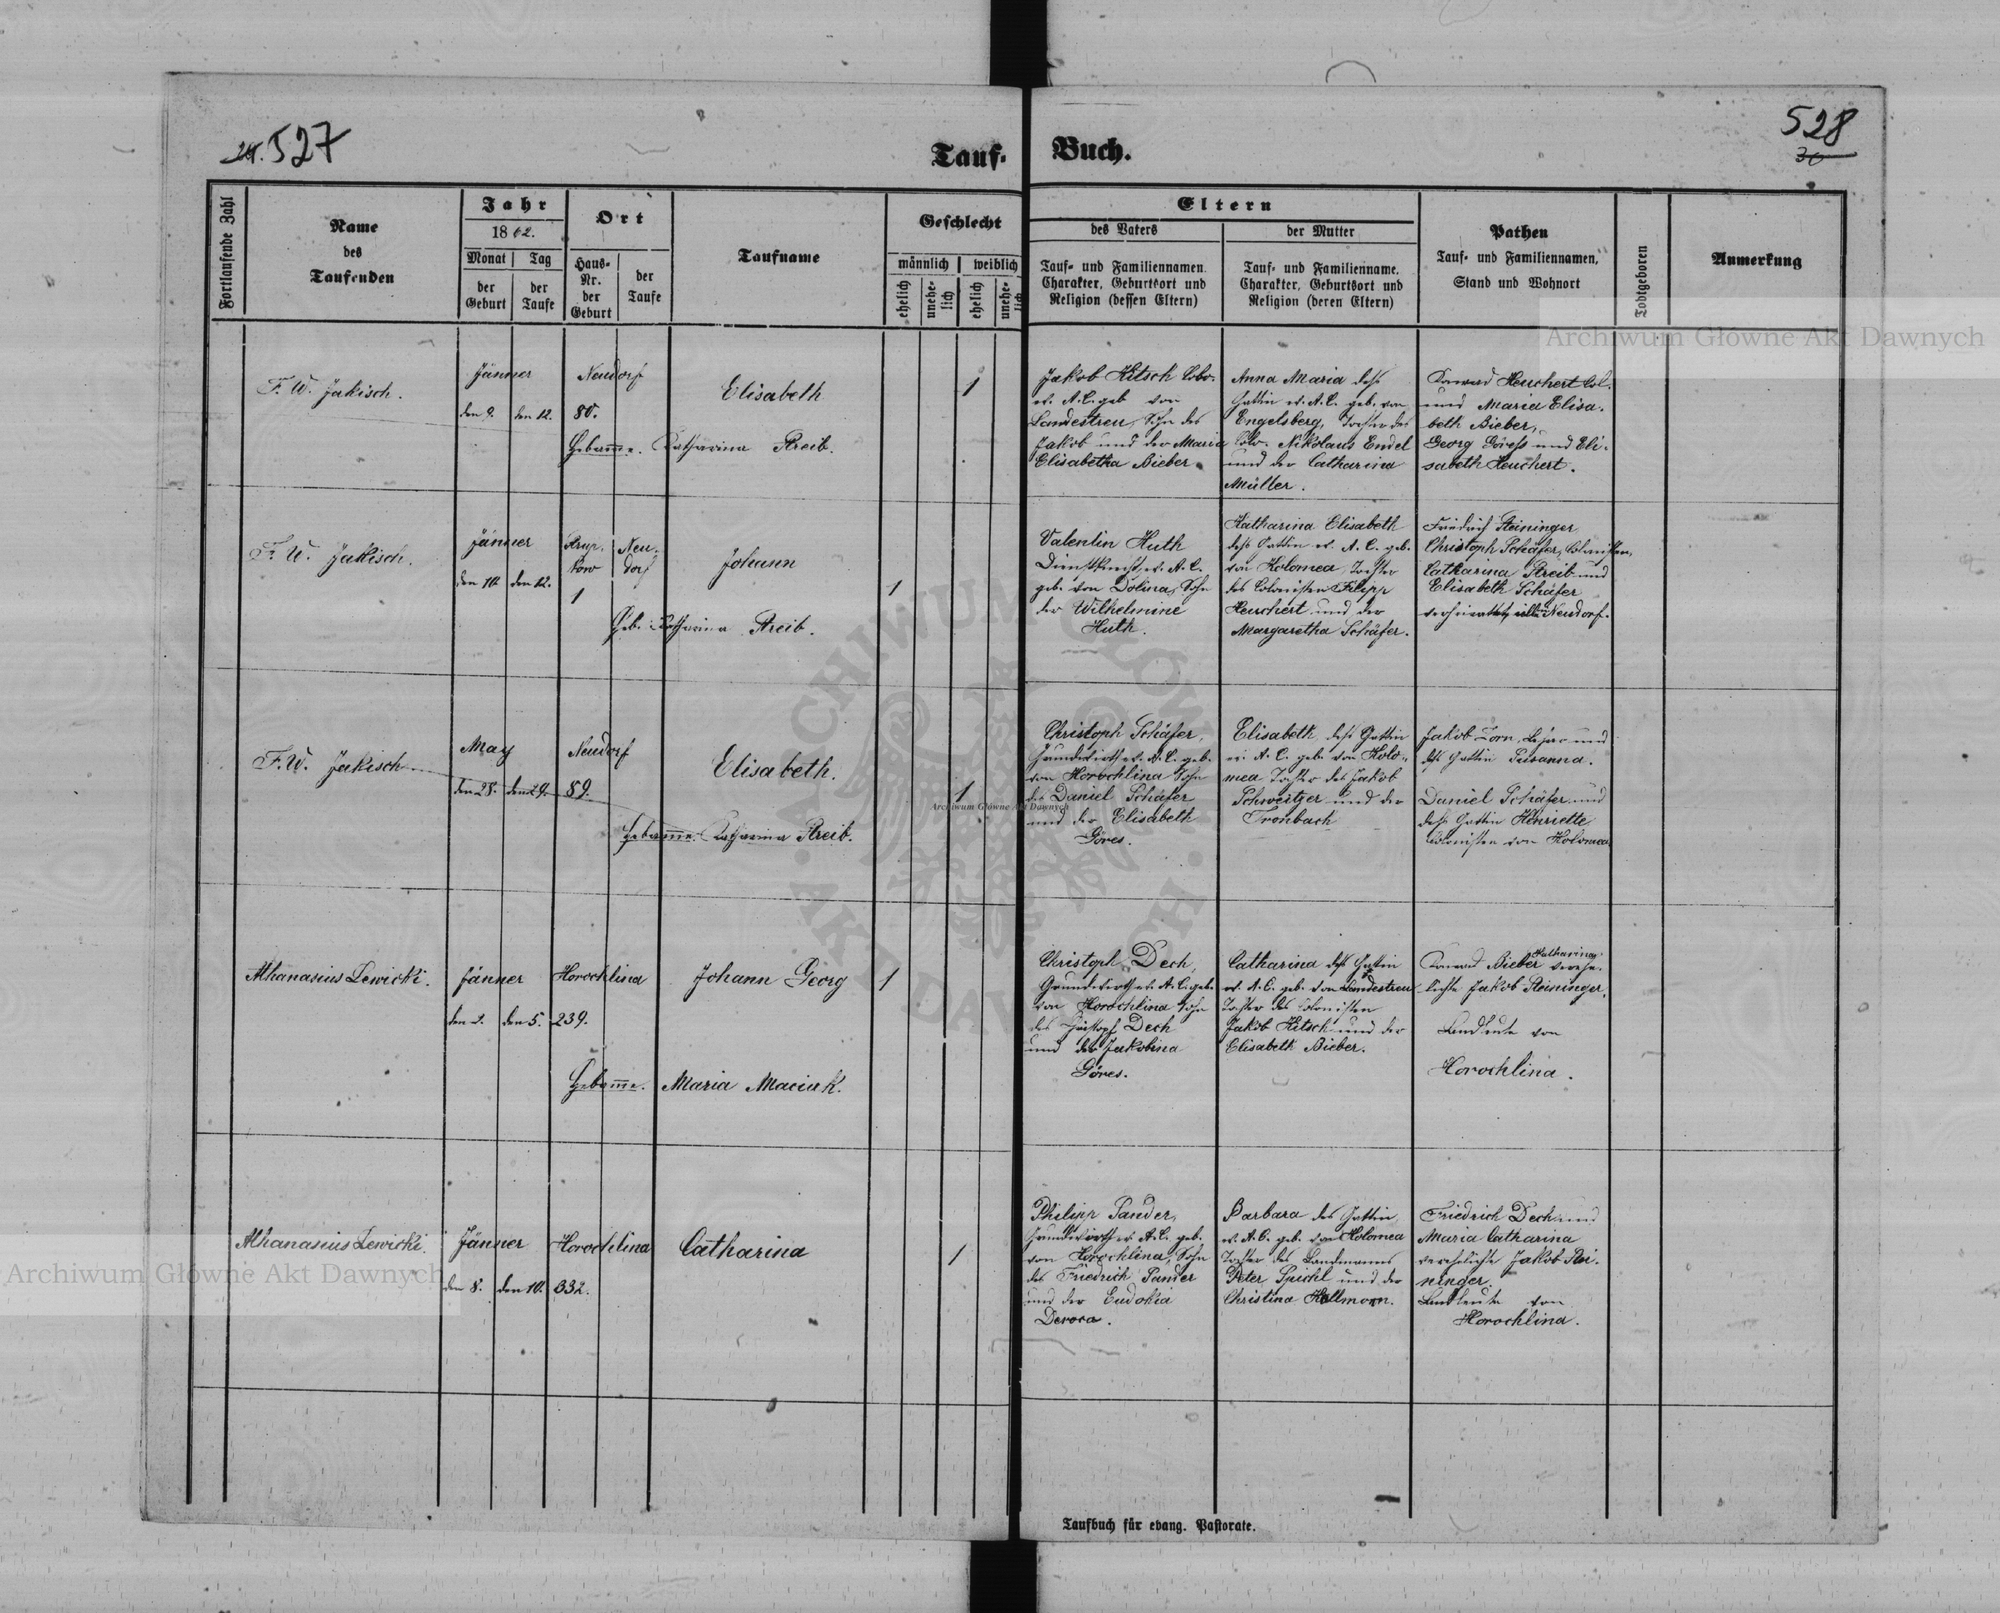 527
528
Tauf-Buch.
Fortlaufende Zahl
Name
des
Taufenden
Jahr
1862.
Monat Tag
der Geburt
der Taufe
Ort
Haus-Nr. der Geburt
der Taufe
Taufname
Geschlecht
männlich weiblich
ehelich unehelich ehelich unehelich
Eltern
des Vaters
Tauf- und Familiennamen.
Charakter, Geburtsort und
Religion (dessen Eltern)
der Mutter
Tauf- und Familienname.
Charakter, Geburtsort und
Religion (deren Eltern)
Pathen
Tauf- und Familiennamen,
Stand und Wohnort
Todtgeboren
Anmerkung
F. W. Jakisch.
Jänner
den 9. den 12.
Neudorf
80.
Elisabeth
1
Hebamme. Katharina Streib.
Jakob Hitsch Colo.
ev. A. C. geb von
Landestreu, Sohn des
Jakob und der Maria
Elisabetha Bieber.
Anna Maria dess
Gattin ev. A. C. geb. von
Engelsberg, Tochter des
Colo. Nikolaus Endel
und der Catharina
Müller.
Konrad Heuchert Col.
und Maria Elisa-
beth Bieber,
Georg Göress und Eli-
sabeth Heuchert.
F. W. Jakisch.
Jänner
den 10. den 12.
Neu-
dorf
1
Johann
1
Heb. Katharina Streib.
Valentin Huth
Dienstknecht, ev. A. C.
geb. von Dolina, Sohn
der Wilhelmine
Huth.
Katharina Elisabeth
dess Gattin ev. A. C. geb.
von Kolomea, Tochter
des Colonisten Filipp
Heuchert und der
Margaretha Schäfer.
Friedrich Steininger
Christoph Schäfer, Colonisten,
Catharina Streib und
Elisabeth Schäfer
verheiratet, alle Neudorf.
F. W. Jakisch
May
den 28. den 29.
Neudorf
89.
Elisabeth.
1
Hebamme. Katharina Streib.
Christoph Schäfer,
Grundwirth ev. A. C. geb.
von Horochlina Sohn
des Daniel Schäfer
und der Elisabeth
Göres.
Elisabeth, dess Gattin
ev. A. C. geb. von Kolo-
mea Tochter des Jakob
Schweitzer und der
Tronbach
Jakob Zorn, und
dess Gattin Susanna.
Daniel Schäfer und
dess Gattin Henriette
Colonisten von Kolomea
Athanasius Lewicki.
Jänner
den 2. den 5.
Horochlina
239.
Johann Georg
1
Hebamme. Maria Maciuk.
Christoph Dech,
Grundwirth ev. A. C. geb.
von Horochlina Sohn
des Christoph Dech
und der Jakobina
Göres.
Catharina dess Gattin
ev. A. C. geb. von Landestreu
Tochter des Colonisten
Jakob Hitsch und der
Elisabeth Bieber.
Konrad Bieber Katharina
verehe-
lichte Jakob Steininger,
Landleute von
Horochlina.
Athanasius Lewicki.
Jänner
den 8. den 10.
Horochlina
332.
Catharina
1
Philipp Pander,
Grundwirth ev. A. C. geb.
von Horochlina, Sohn
des Friedrich Pander
und der Eudokia
Barbara des Gattin
ev. A. C. geb. von Kolomea
Tochter des Landmanns
Peter Spichl und der
Christina Hallmann.
Friedrich Dech und
Maria Catharina
verehelichte Jakob Stei-
ninger.
Landleute von
Horochlina.
Taufbuch für evang. Pastorate.
Archiwum Główne Akt Dawnych
Archiwum Główne Akt Dawnych
Archiwum Główne Akt Dawnych